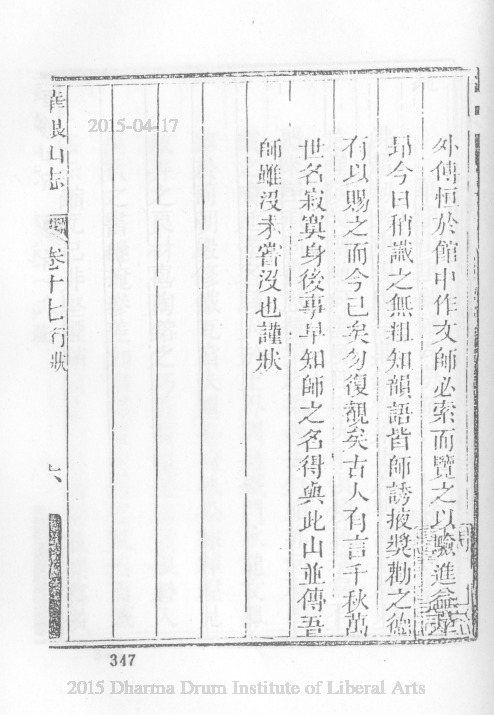 外傅恒於館中作文師必索而覽之以驗進益
昻今日稍識之無粗知韻語皆師誘掖奬勸之
有以賜之而今已矣勿復覩矣古人有言千秋萬
世名寂寞身後事早知師之名得與此山並傳吾
師雖沒未嘗沒也謹狀
華銀山志
卷十七行狀
六
347
2015-04-17
2015 Dharma Drum Institute of Liberal Arts